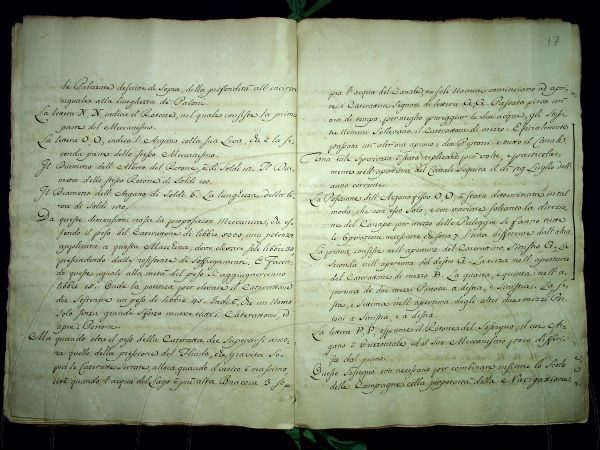 le Palizzate descritte di Sopra, della profondità all'incirca
uguale alla lunghezza de Paloni.
La lettera N, N indica il Rotone, nel quale consiste la prima
parte del Meccanismo.
La lettera O, O, indica l'Argano colla sua Leva, che è la se-
conda parte dello stesso Meccanismo.
Il Diametro dell'Albero del Rotone, è di Soldi 12. Il Dia-
metro dello stesso Rotone di Soldi 100.
Il Diametro dell'Argano di Soldi 6. La lunghezza della Le-
va di Soldi 120.
Da queste dimensioni nasce la proporzione Meccanica, che es-
sendo il peso del Catarattone di libbre 3000 una potenza
applicata a questa Macchina, deve elevare sole libbre 30
prescindendo dalle resistenze di soffregamento. E facen-
do queste uguali alla metà del peso Si aggiungeranno
libbre 15. Onde la potenza per elevare il Catarattone
dee Superare un peso di libbre 45. Indi è, che un Uomo
Solo senza grande sforzo muove detti Catarattoni, ed
apre i Portoni.
Ma quando oltre il peso della Cateratta dee Superarsi anco-
ra quello della pressione del Fluido, che gravita So-
pra le Cateratte Serrate, allora quando il carico è massimo
cioè quando l'acqua del Lago è più alta Braccia 3 so-
17
pra l'acqua del Canale, tre soli Uomini cominciano ad apri-
re i Catarattini Signati di lettera A, A. Passata circa un'
ora di tempo, per meglio pareggiar le due acque, gli stes-
si Uomini Sollevano il Catarattone di mezzo. E finalmente
passata un'altra ora aprono i due Portoni, e tutto il Canale.
Una tale Sperienza è stata replicata più volte, e particolar-
mente nell'apertura del Canale Seguita il dì 19 Luglio dell'
anno corrente.
La Posizione dell'Argano fisso O, O, è stata determinata in tal
modo, che con esso Solo, e con variare soltanto la direzio-
ne del Canapo per mezzo delle Puleggie si fanno tutte
le Operazioni necessarie, che sono 7. Tutte differenti dall'altra.
La prima consiste nell'apertura del Catarattino Sinistro A. La
Seconda nell'apertura del destro A. La terza nell'apertura
del Catarattone di mezzo B. La quarta, e quinta nell'a-
pertura de due mezzi Portoni a destra, e Sinistra. La se-
sta, e Settima nell'apertura degli altri due mezzi Por-
toni a Sinistra e a destra.
La lettera P, P. esprime il Rotone del Sostegno, il cui Ar-
gano è Orizzontale, ed il suo Meccanismo poco differi-
sce dal primo.
Questo Sostegno era necessario per combinare insieme lo Scolo
delle Campagne colla perpetuità della Navigazione